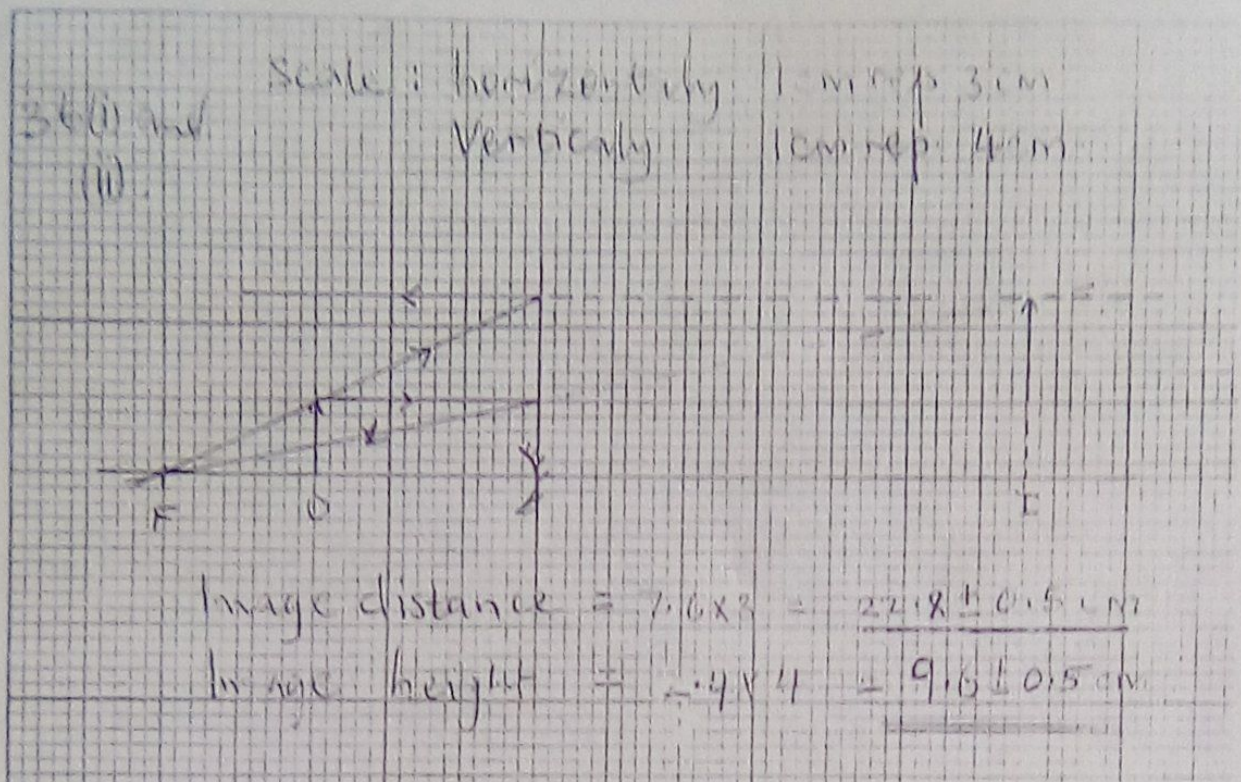 Scale : horizontaly 1 cm rep. 3 cm
3b(i) and
Verticaly 1cm rep. 4cm
(ii).
F O I
Image distance = 7.6x3 = 22.8 ± 0.5 cm
Image height = 2.4x4 = 9.6 ± 0.5 cm